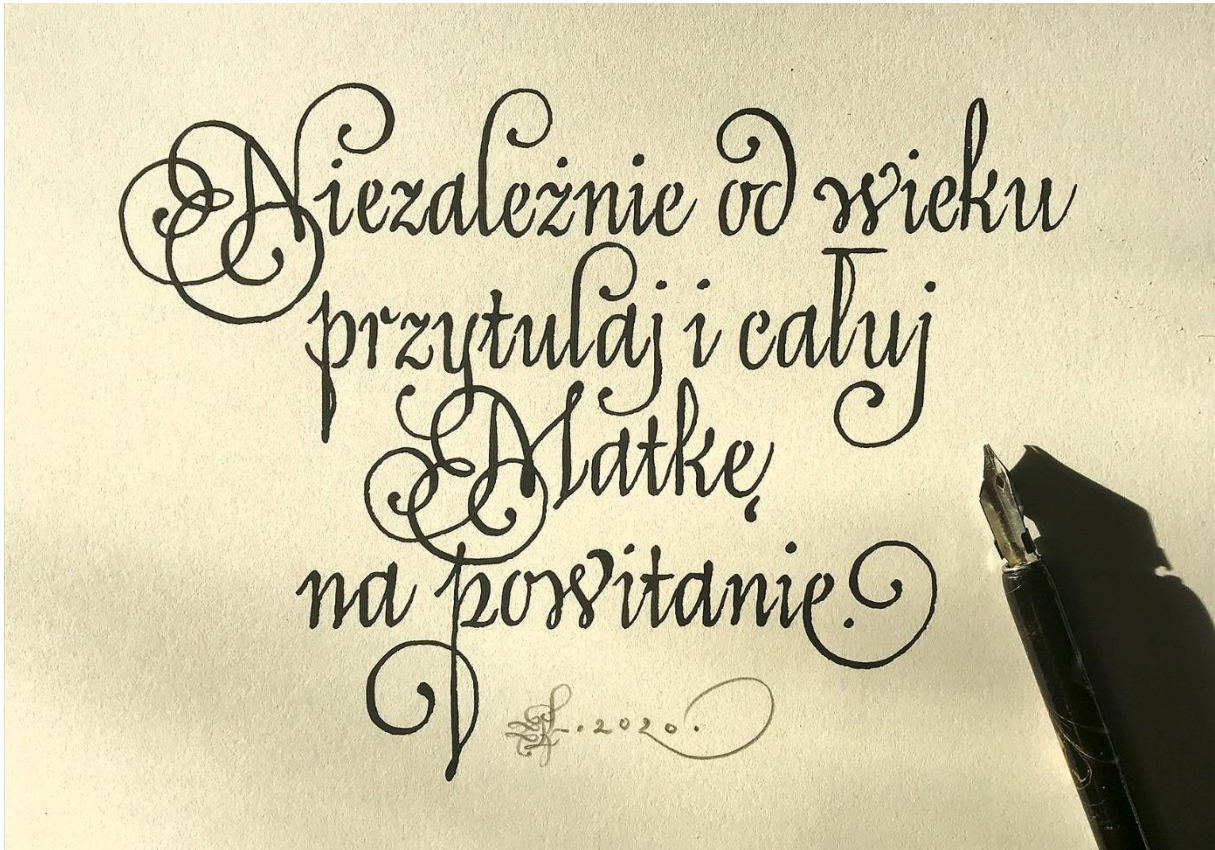 Niezależnie od wieku
przytulaj i całuj
Matkę
na powitanie.
.2020.